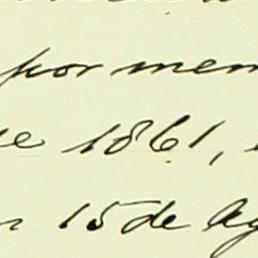 por mem
e 1861,
15 de Ag